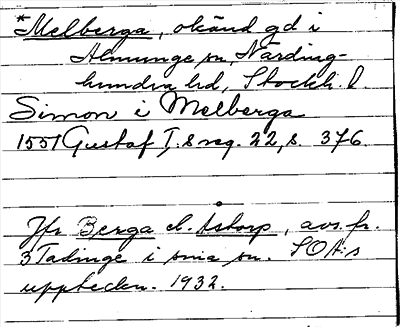 *Melberga, okänd gd i
Almunge sn, Närding-
hundra hd, Stockh. l.
Simon i Melberga
1551 Gustaf I.s reg. 22, s. 376.
Jfr Berga el. Astorp, avs. fr.
3 Tadinge i sma sn. SOA:s
uppteckn. 1932.